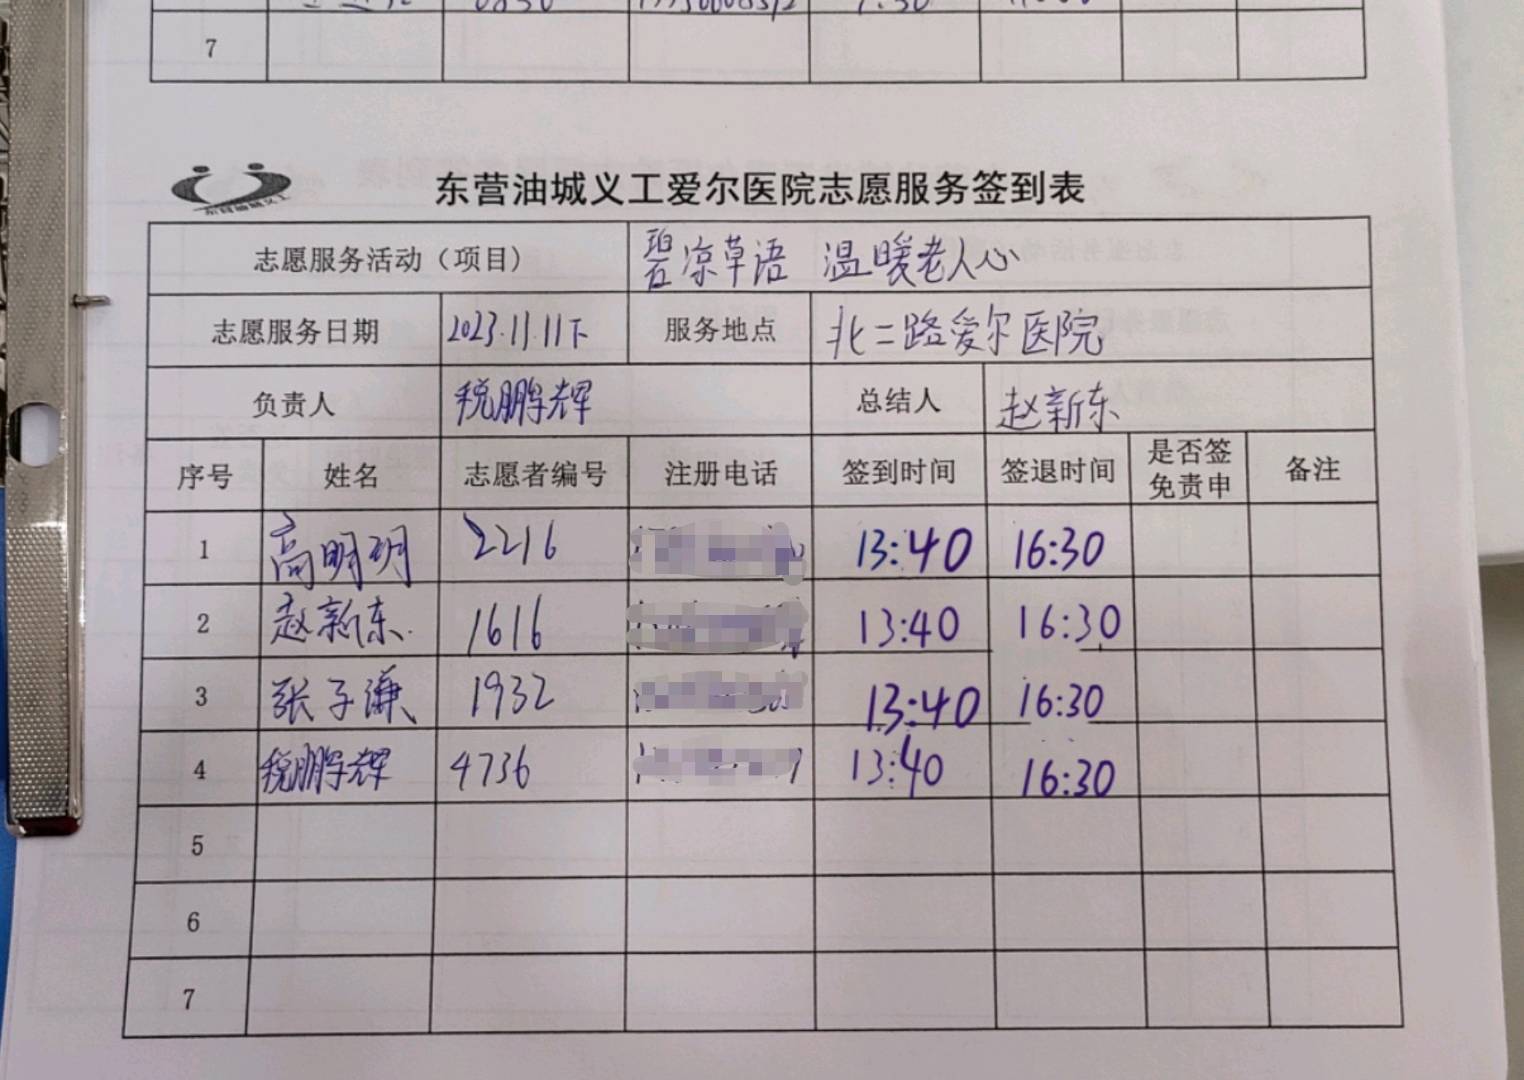 7
东营油城义工
东营油城义工爱尔医院志愿服务签到表
志愿服务活动（项目） 碧凉草语 温暖老人心
志愿服务日期 2023.11.11下 服务地点 北二路爱尔医院
负责人 税鹏辉 总结人 赵新东
序号 姓名 志愿者编号 注册电话 签到时间 签退时间 是否签免责申 备注
1 高明玥 2216 13:40 16:30
2 赵新东 1616 13:40 16:30
3 张子谦 1932 13:40 16:30
4 税鹏辉 4736 13:40 16:30
5
6
7